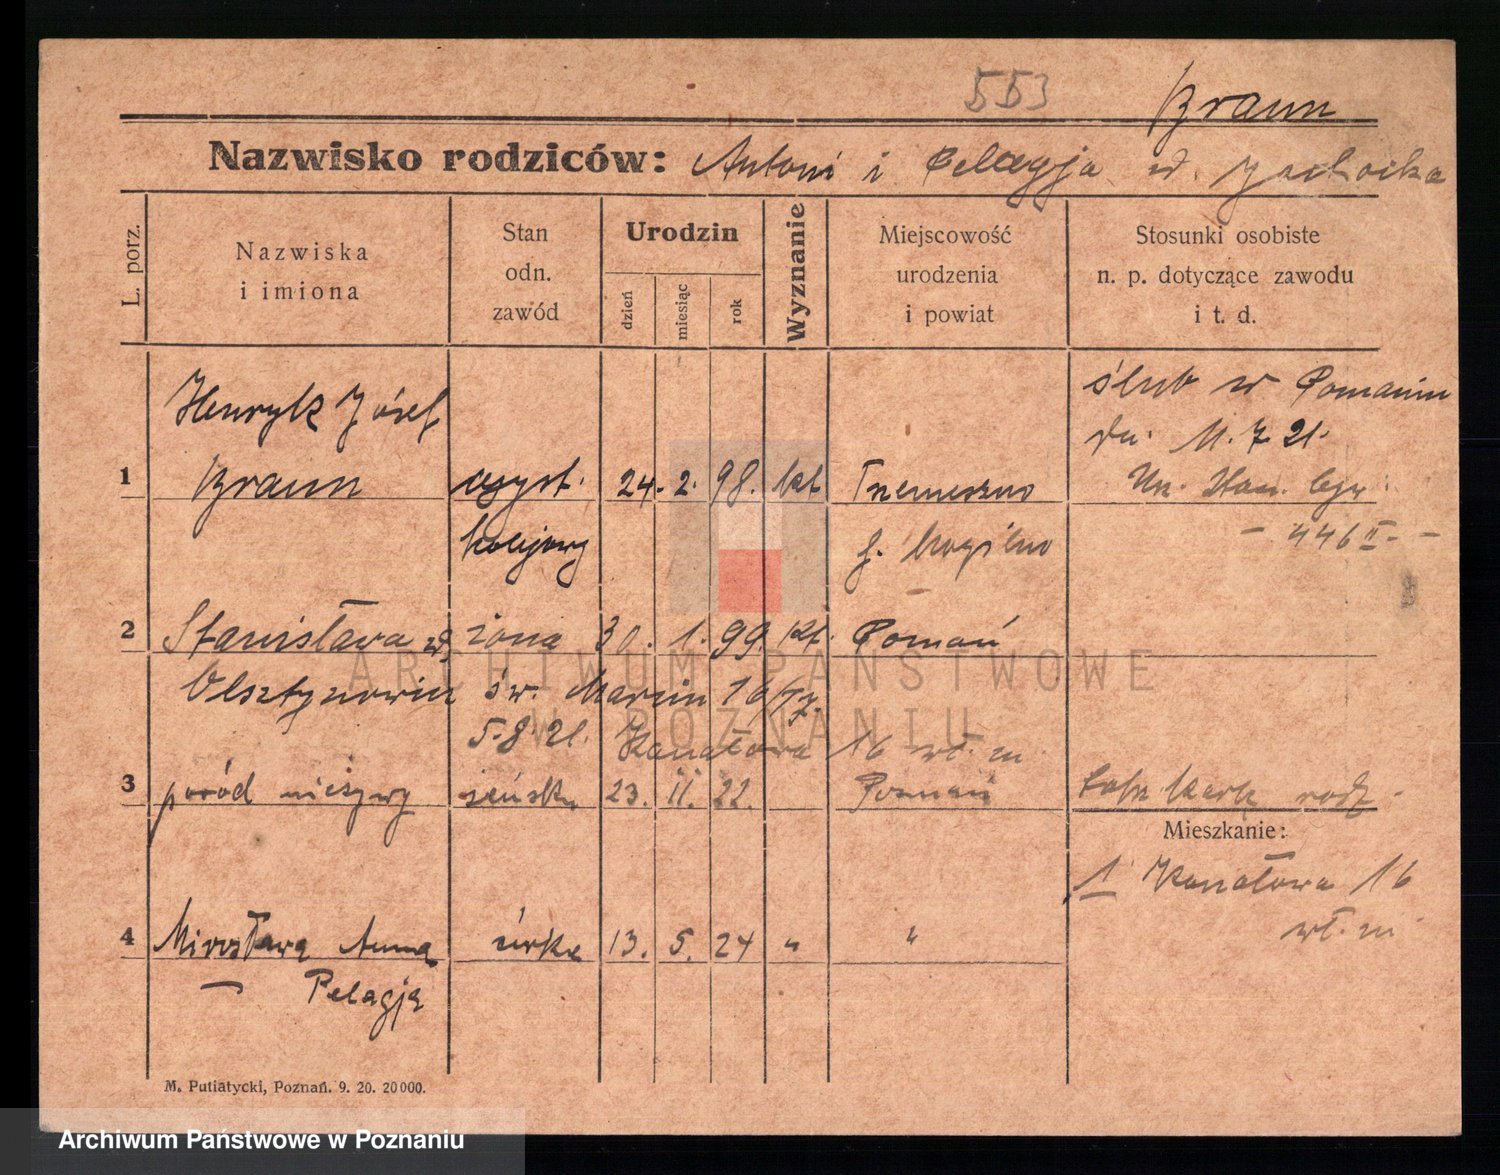 553 Braun
Nazwisko rodziców: Antoni i Pelagja zd.
L. porz.
Nazwiska i imiona
Stan odn. zawód
Urodzin
dzień
miesiąc
rok
Wyznanie
Miejscowość urodzenia i powiat
Stosunki osobiste n. p. dotyczące zawodu i t. d.
Henryk Józef
ślub w Poznaniu
dn. 11.7.21.
1 Braun asyst. 24. 2. 98. kat Trzemeszno
Un. Stan. Cyw.
kolejowy p. Mogilno
- 446 II - -
2 Stanisława zd. żona 30. 1. 99. kat. Poznań
św. Marcin 16/17.
5.8.21. Kanałowa 16
3 poród nieżywy żeńsk. 23. 11. 22. Poznań
Mieszkanie:
1 Kanałowa 16
4 Mirosława Anna córka 13. 5. 24 " "
— Pelagja
M. Putiatycki, Poznań. 9. 20. 20000.
ARCHIWUM PAŃSTWOWE
W POZNANIU
Archiwum Państwowe w Poznaniu